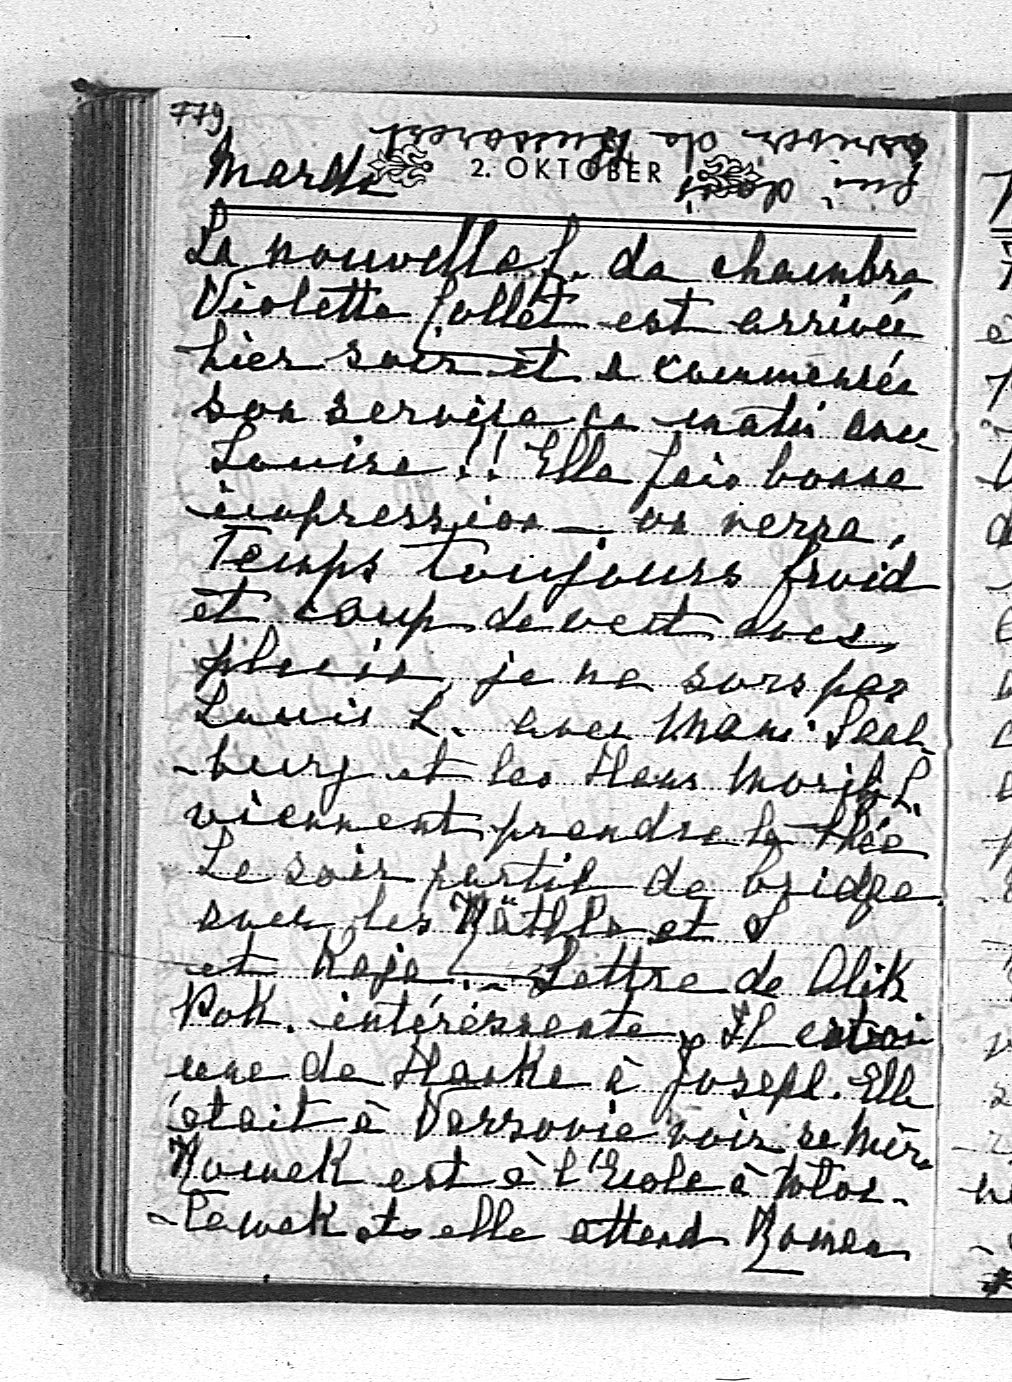 779
Mardi
2. OKTOBER
La nouvelle f. de chambre
Violette Jollet est arrivée
hier soir et a commensée
son servise ce matin avec
Louise!! Elle fais bonne
impression — on verra,
Temps toujours froid
et coup de vent avec
pluie, je ne sors pas
Louis L. avec Mani Saal
-burg et les Hans Moritz L.
viennent prendre le thée
Le soir partie de bridge
avec les Käthls et
et Kaja. - Lettre de Alik
Rok. intéressente, Il
une de Haske à Joseph. Elle
était à Varsovie voir sa Mère
est à l'École à
-Pewek et elle attend Roman
qui doit
arriver de Bucarest